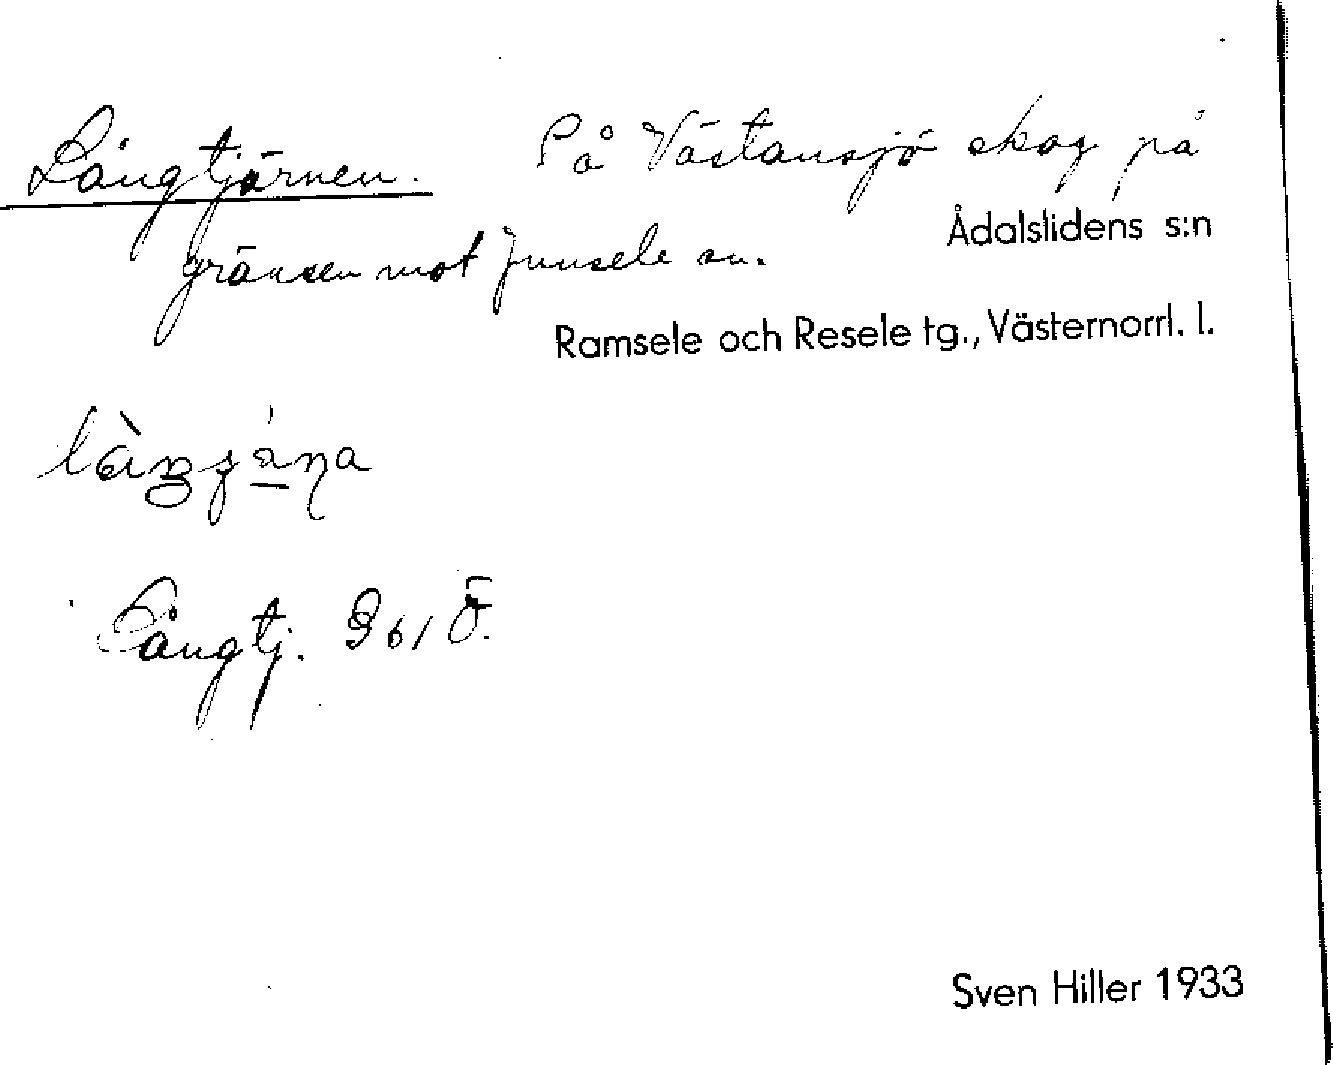 Långtjärnen. På Västansjö skog på
Ådalslidens s:n
gränsen mot Junsele sn.
Ramsele och Resele tg., Västernorrl. l.
Långtj. Gb 1 Ö.
Sven Hiller 1933